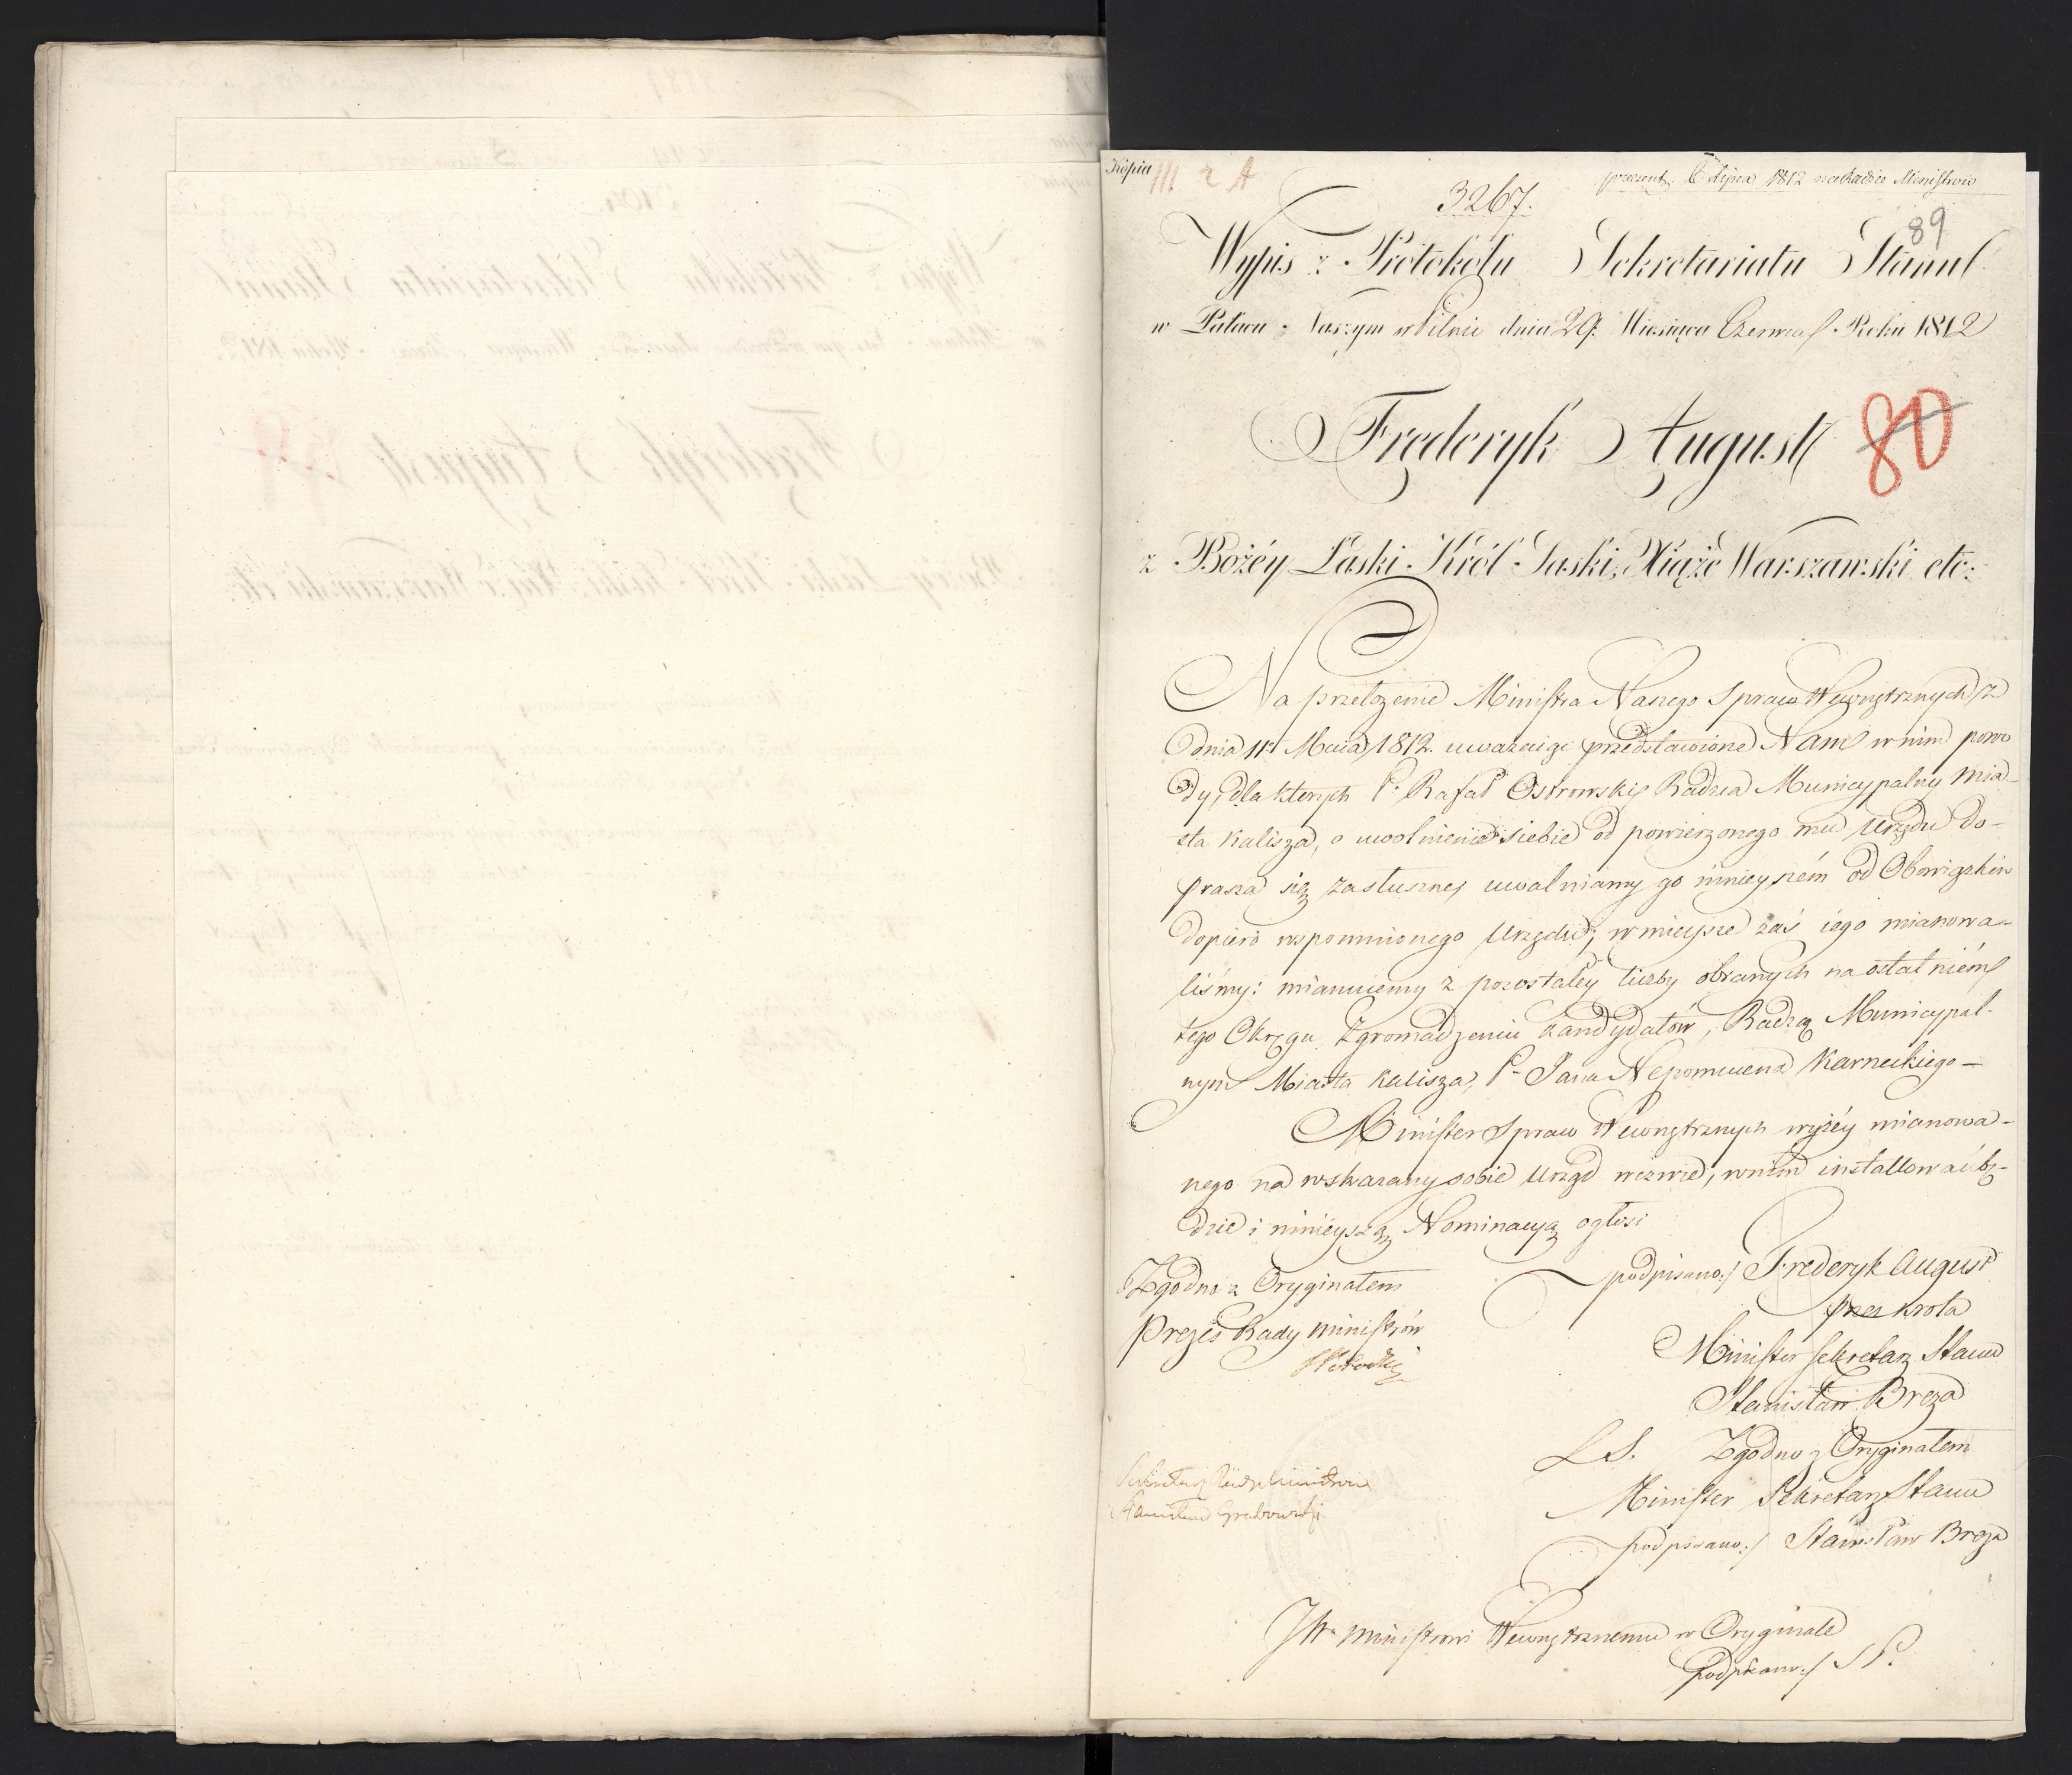 Kopia
III 2 A
prezent. 6 Lipca 1812 na Radzie Ministrów
3267.
89
Wypis z Protokółu Sekretariatu Stanu
w Pałacu Naszym w Pilnic dnia 29. Miesiąca Czerwca Roku 1812
Fryderyk August
80
z Bożéy Łaski Król Saski, Xiąże Warszawski etc:
Na przełożenie Ministra Naszego Spraw Wewnętrznych z
dnia 11. Maia 1812. uważaiąc przedstawione Nam w nim powo
dy, dla których P. Rafał Ostrowski Radca Municypalny Mia-
sta Kalisza, o uwolnienie siebie od powierzonego mu Urzędu do-
prasza się za słuszne, uwalniamy go ninieyszém od Obowiązków
dopiéro wspomnionego Urzędu; w mieysce zaś iego mianowa-
liśmy: mianuiemy z pozostałey liczby obranych na ostatniém
tego Okręgu Zgromadzeniu kandydatów, Radzcą Municypal-
nym Miasta Kalisza, P. Jana Nepomucena Karneckiego —
Minister Spraw Wewnętrznych wyżéy mianowa-
nego na wskazany sobie Urząd wezwie, w nim installować bę-
dzie i ninieyszą Nominacyą ogłosi
podpisano:/ Frederyk August
przez Króla
Minister Sekretarz Stanu
Stanisław Breza
Zgodno z Oryginałem
Prezes Rady Ministrów
L S. Zgodno z Oryginałem
Minister Sekretarz Stanu
podpisano:/ Stanisław Breza
Sekretarz Rady Ministrów
Stanisław Grabowski
JW. Ministrowi Wewnętrznemu w Oryginale
podpisano:/ S P.